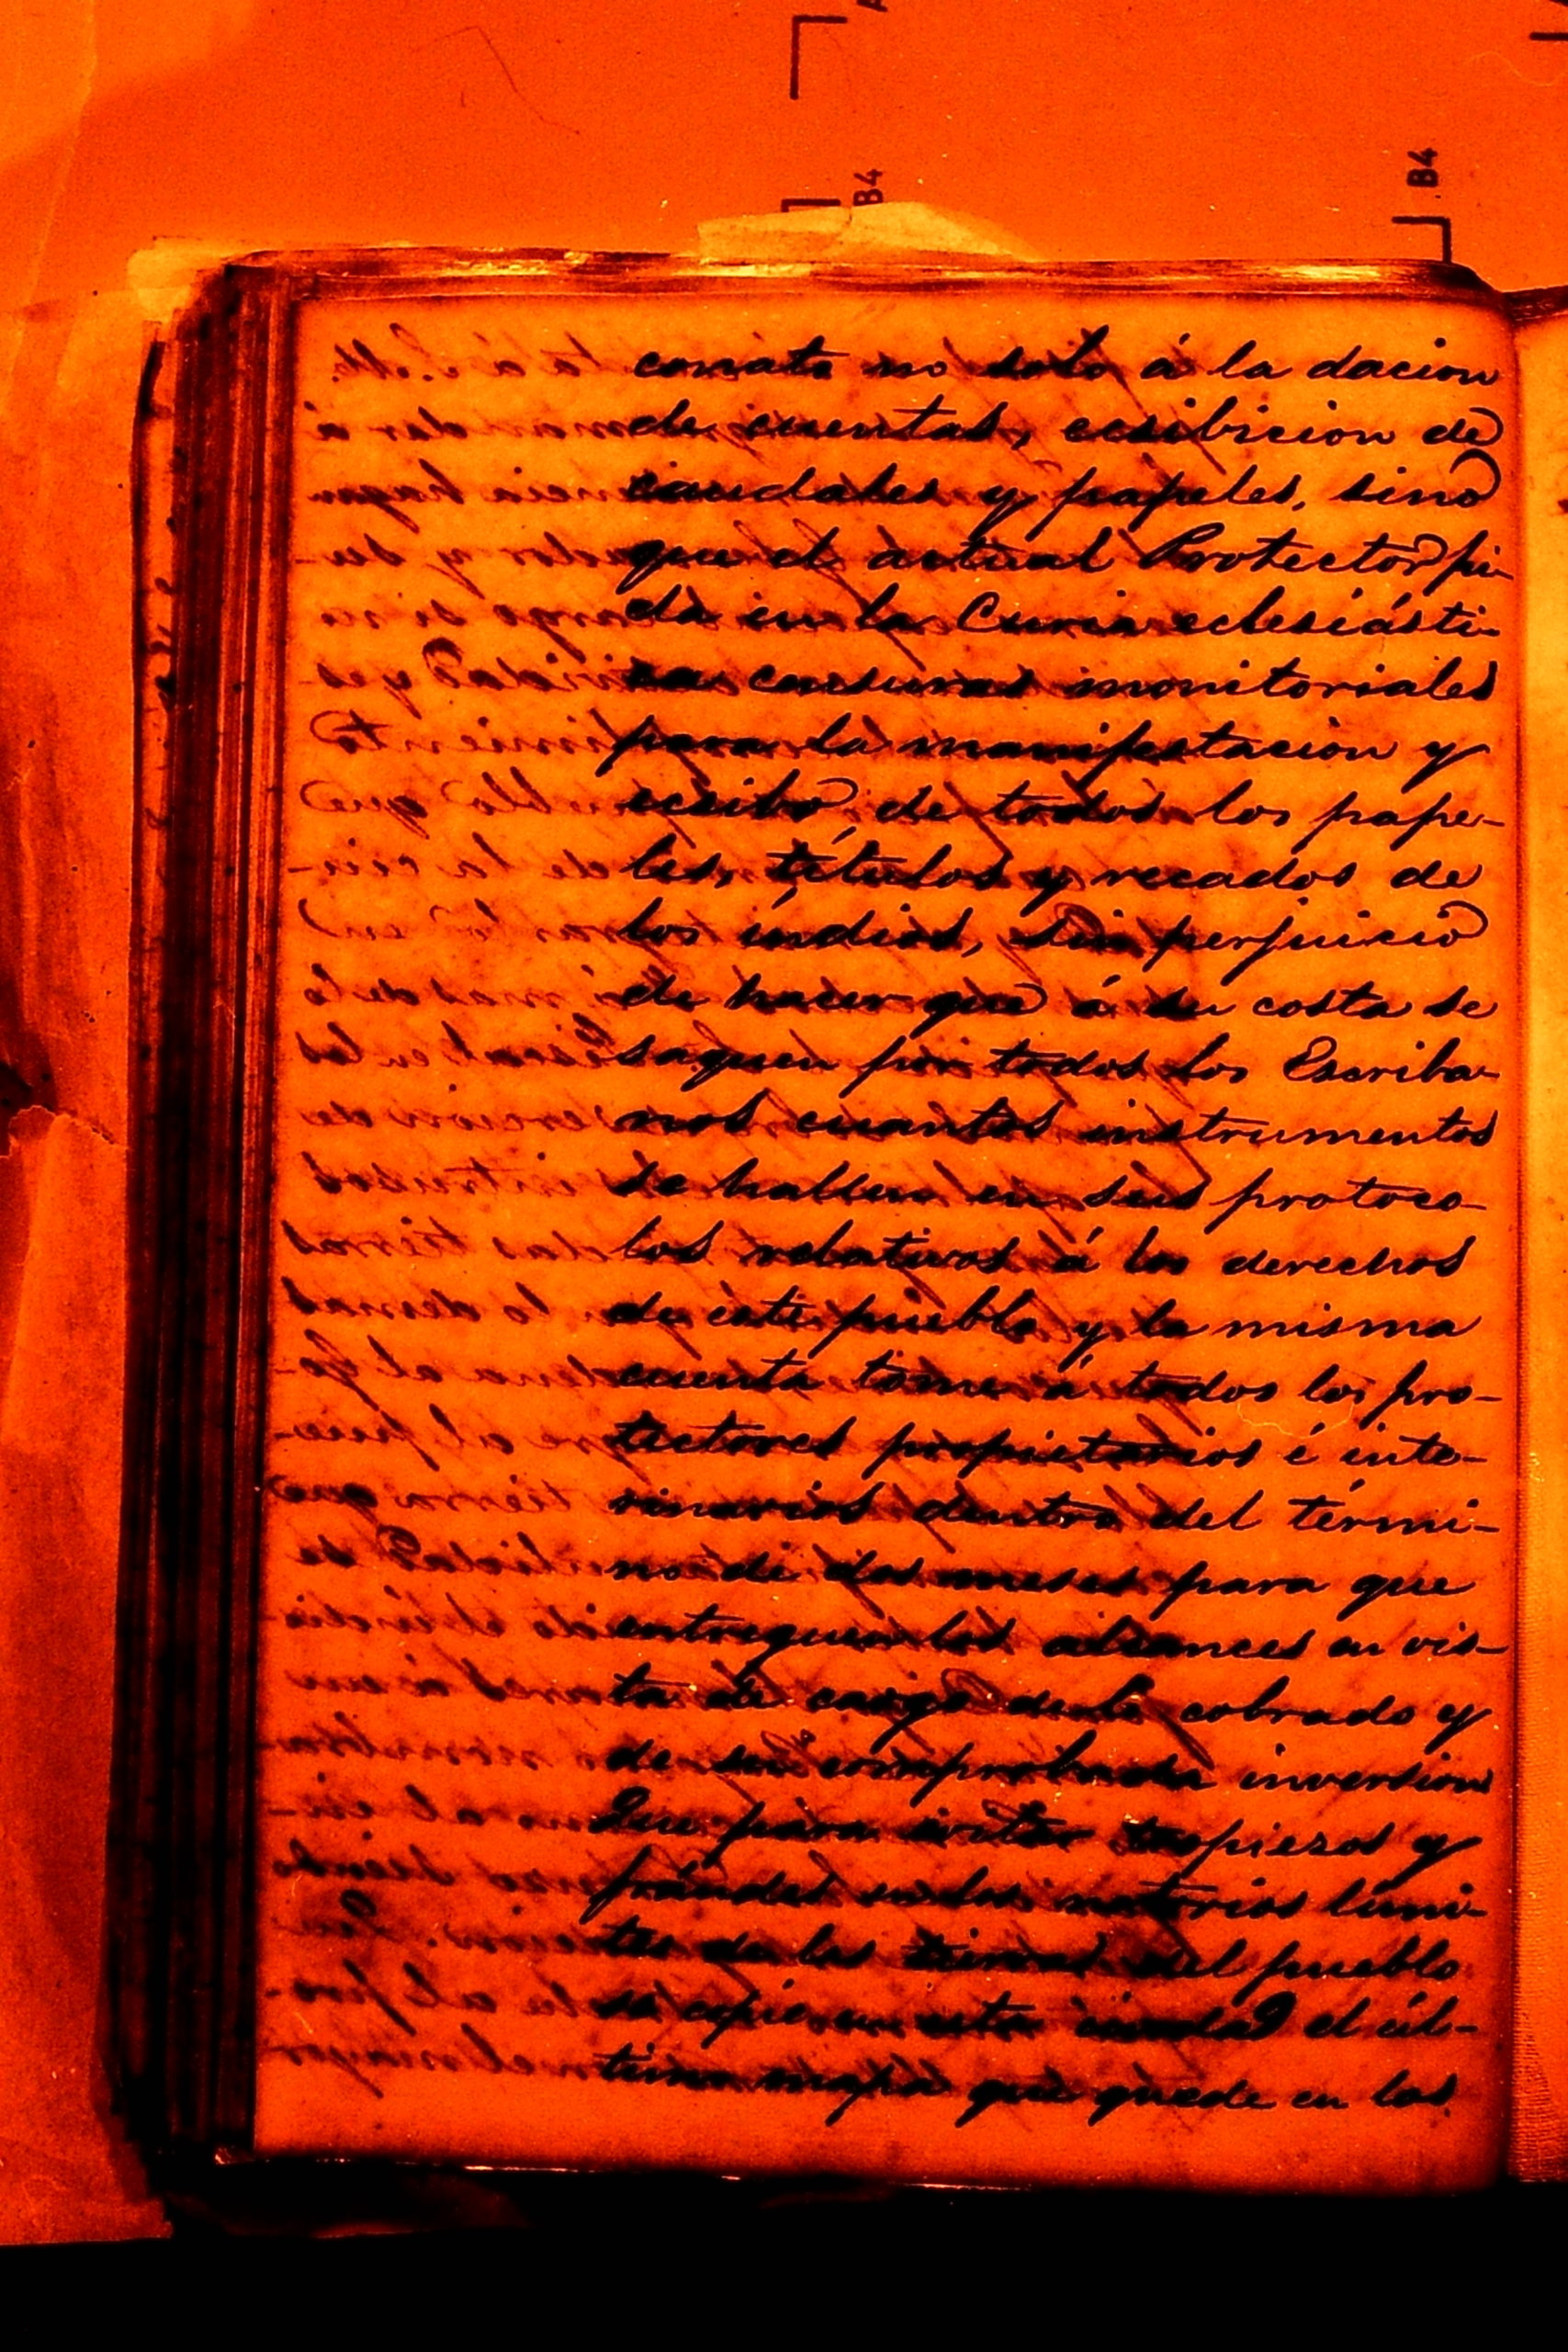 B4
B4
conato no solo á la dacion
de cuentas, ecsibicion de
caudales y papeles, sino
que el actual Protector pi-
da en la Curia eclesiásti-
ca censuras monitoriales
para la manifestacion y
ecsibo de todos los pape-
les, títulos y recados de
los indios, sin perjuicio
de hacer que á su costa se
saquen por todos los Escriba-
nos cuantos instrumentos
se hallen en sus protoco-
los relativos á los derechos
de este pueblo y la misma
cuenta tome á todos los pro-
tectores propietarios é inte-
rinarios dentro del térmi-
no de dos meses para que
entreguen los alcances en vis-
ta de cargo de lo cobrado y
de su comprobada inversion
Que para evitar tropiesos y
fraudes en los notorios limi-
tes de las tierras del pueblo
se copie en esta ciudad el úl-
timo mapa que quede en los